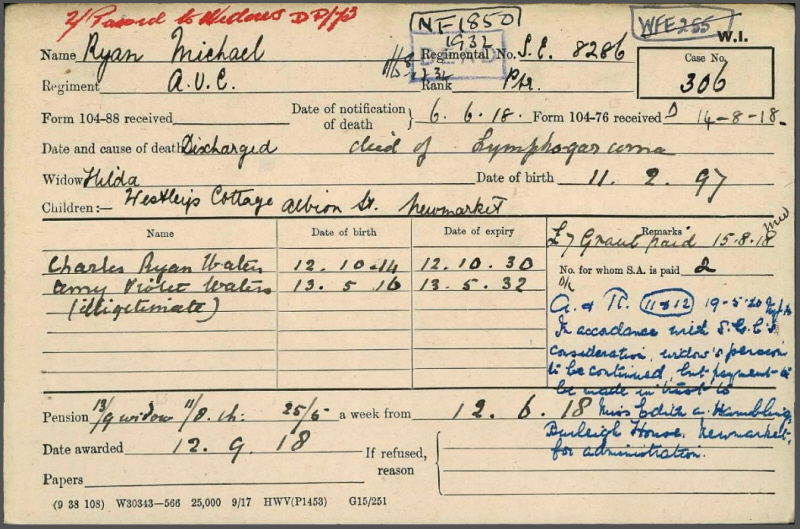 2/ Passed to Widows DP/73
NF1850
1932
WFE255
W.I.
Name Ryan Michael
Regimental No. S.E. 8286
Case No.
306
DEAD
Regiment A.V.C.
Rank Pte.
Form 104-88 received
Date of notification of death } 6.6.18.
Form 104-76 received D 14-8-18.
Date and cause of death Discharged died of Lymphosarcoma
Widow Hilda
Date of birth 11.2.97
Children:— Westley's Cottage Albion St. Newmarket
Name Date of birth Date of expiry Remarks
£7 Grant paid 15.8.18
Charles Ryan Waters 12.10.14 12.10.30
No. for whom S.A. is paid 2
Amy Violet Waters 13.5.16 13.5.32
(illegitimate)
A. & R. 11 & 12 19-5-20
In accordance with S.G.C's
consideration, widow's pension
to be continued, but payment to
be made in trust to
Pension 13/9 widow 11/8 ch: 25/5 a week from 12.6.18
Miss Edith A. Hambling,
Burleigh House, Newmarket,
for administration.
Date awarded 12.9.18
If refused, reason {
Papers
(9 38 108) W30343—566 25,000 9/17 HWV(P1453) G15/251